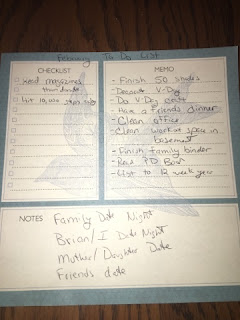 February To Do List
CHECKLIST
Read magazines
then donate
Hit 10,000 steps daily
MEMO
- Finish 50 shades
- Decorate V-Day
- Do V-Day craft
- Have a friends dinner
- Clean office
- Clean workout space in
basement
- Finish family binder
- Read PD Book
- List to 12 week year
NOTES
Family Date Night
Brian/I Date Night
Mother/Daughter Date
Friends date